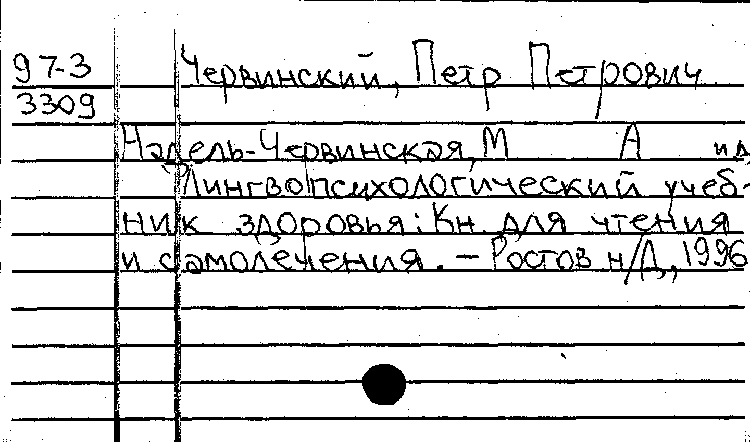 97-3 Червинский, Петр Петрович
3309
Надель-Червинская, М А и др
Лингвопсихологический учеб-
ник здоровья: Кн. для чтения
и самолечения. – Ростов н/Д, 1996